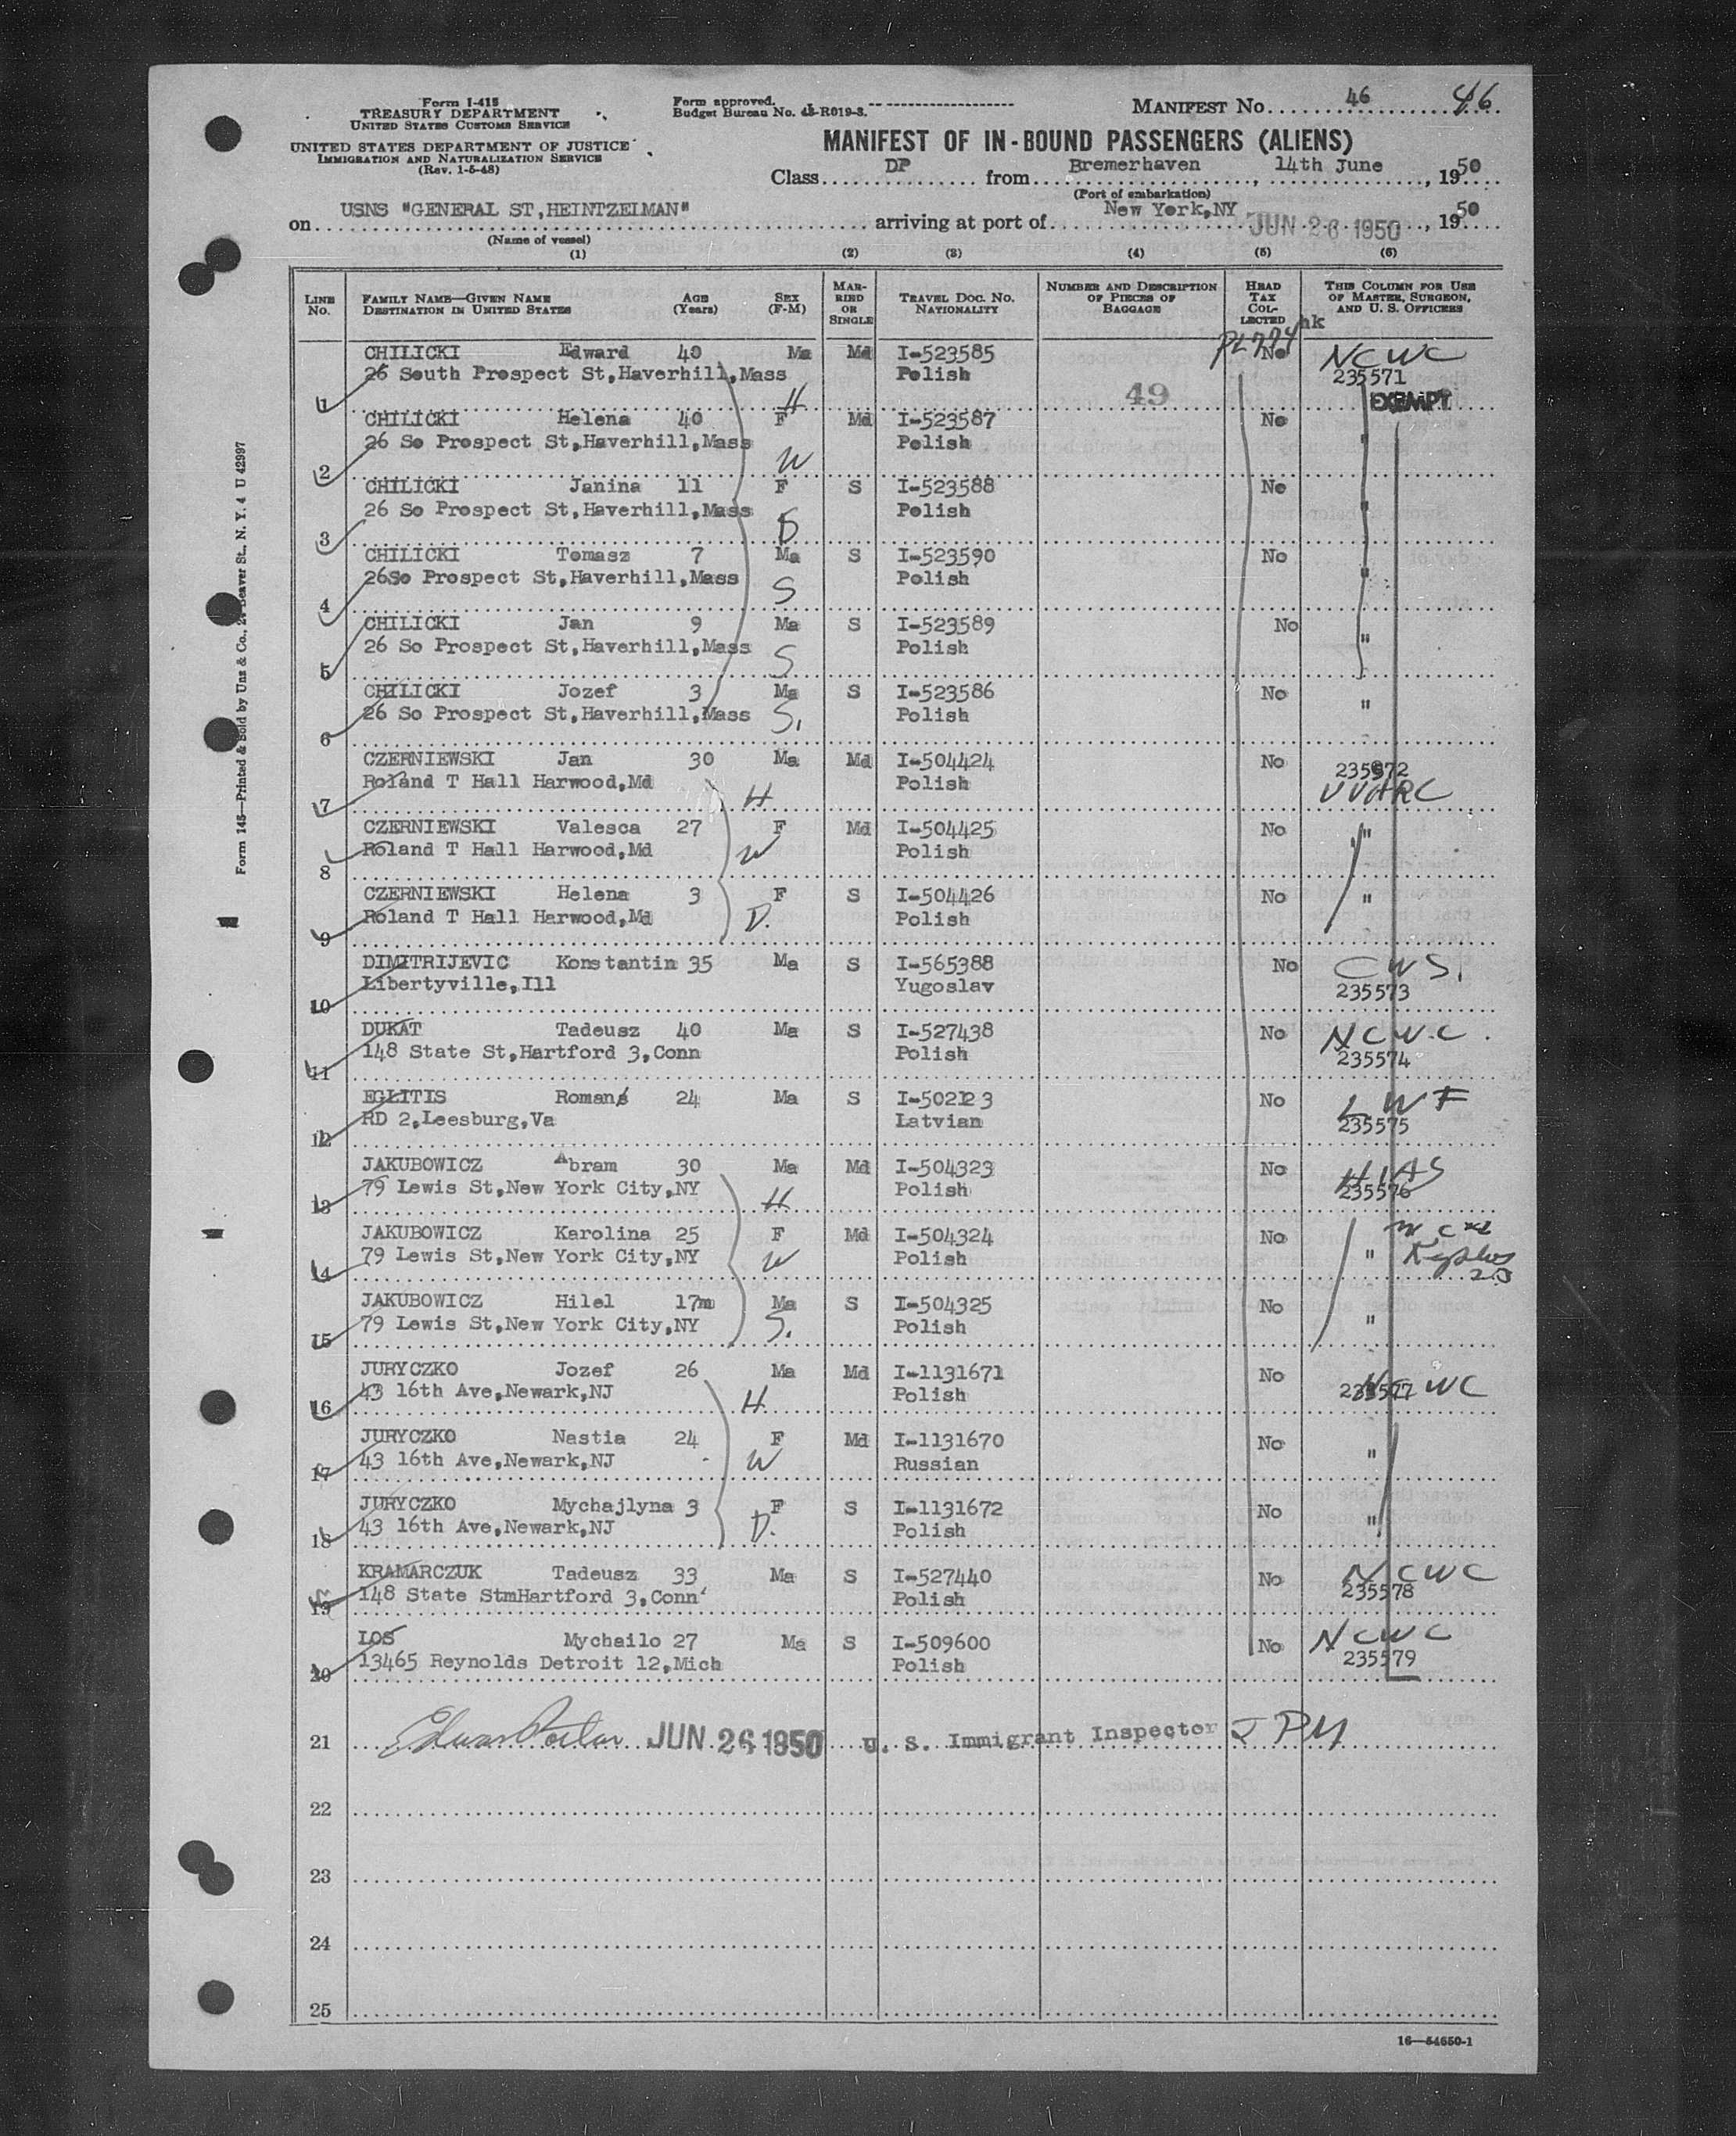 Form I-415
TREASURY DEPARTMENT
UNITED STATES CUSTOMS SERVICE
UNITED STATES DEPARTMENT OF JUSTICE
IMMIGRATION AND NATURALIZATION SERVICE
(Rev. 1-5-48)
Form approved.
Budget Bureau No. 43-R019-3.
MANIFEST NO. 46 46
MANIFEST OF IN-BOUND PASSENGERS (ALIENS)
Class DP from Bremerhaven, 14th June, 1950
(Port of embarkation)
on USNS "GENERAL ST,HEINTZELMAN" arriving at port of New York,NY JUN 26 1950, 1950
(Name of vessel)
(1) (2) (3) (4) (5) (6)
LINE No. FAMILY NAME—GIVEN NAME DESTINATION IN UNITED STATES AGE (Years) SEX (F-M) MARRIED OR SINGLE TRAVEL DOC. NO. NATIONALITY NUMBER AND DESCRIPTION OF PIECES OF BAGGAGE HEAD TAX COLLECTED THIS COLUMN FOR USE OF MASTER, SURGEON, AND U. S. OFFICERS
hk
PL 774
CHILICKI Edward 40 Ma Md I-523585 No NCWC
26 South Prospect St,Haverhill,Mass Polish 235571
1 H 49 EXEMPT
CHILICKI Helena 40 F Md I-523587 No
26 So Prospect St,Haverhill,Mass Polish "
2 W
CHILICKI Janina 11 F S I-523588 No
26 So Prospect St,Haverhill,Mass Polish "
3 D
CHILICKI Tomasz 7 Ma S I-523590 No
26So Prospect St,Haverhill,Mass Polish "
4 S
CHILICKI Jan 9 Ma S I-523589 No
26 So Prospect St,Haverhill,Mass Polish "
5 S
CHILICKI Jozef 3 Ma S I-523586 No
26 So Prospect St,Haverhill,Mass Polish "
6 S.
CZERNIEWSKI Jan 30 Ma Md I-504424 No 235572
Roland T Hall Harwood,Md Polish
7 H
CZERNIEWSKI Valesca 27 F Md I-504425 No "
Roland T Hall Harwood,Md Polish
8 W
CZERNIEWSKI Helena 3 F S I-504426 No "
Roland T Hall Harwood,Md Polish
9 D.
DIMITRIJEVIC Konstantin 35 Ma S I-565388 No CWS.
Libertyville,Ill Yugoslav 235573
10
DUKAT Tadeusz 40 Ma S I-527438 No NCWC.
148 State St,Hartford 3,Conn Polish 235574
11
EGLITIS Romans 24 Ma S I-502123 No LWF
RD 2,Leesburg,Va Latvian 235575
12
JAKUBOWICZ Abram 30 Ma Md I-504323 No HIAS
79 Lewis St,New York City,NY Polish 235576
13 H
JAKUBOWICZ Karolina 25 F Md I-504324 No
79 Lewis St,New York City,NY Polish "
14 W
JAKUBOWICZ Hilel 17m Ma S I-504325 No
79 Lewis St,New York City,NY Polish "
15 S.
JURYCZKO Jozef 26 Ma Md I-1131671 No NCWC
43 16th Ave,Newark,NJ Polish 235577
16 H
JURYCZKO Nastia 24 F Md I-1131670 No
43 16th Ave,Newark,NJ Russian "
17 W
JURYCZKO Mychajlyna 3 F S I-1131672 No
43 16th Ave,Newark,NJ Polish "
18 D.
KRAMARCZUK Tadeusz 33 Ma S I-527440 No NCWC
148 State StmHartford 3,Conn Polish 235578
19
LOS Mychailo 27 Ma S I-509600 No NCWC
13465 Reynolds Detroit 12,Mich Polish 235579
20
21 JUN 26 1950 U. S. Immigrant Inspector
22
23
24
25
16—54650-1
Form 145—Printed & Sold by Unz & Co., 24 Beaver St., N. Y. 4 U 42997